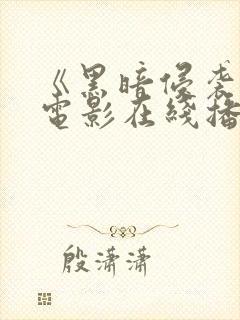 《黑暗侵袭
电影在线播
殷潇潇